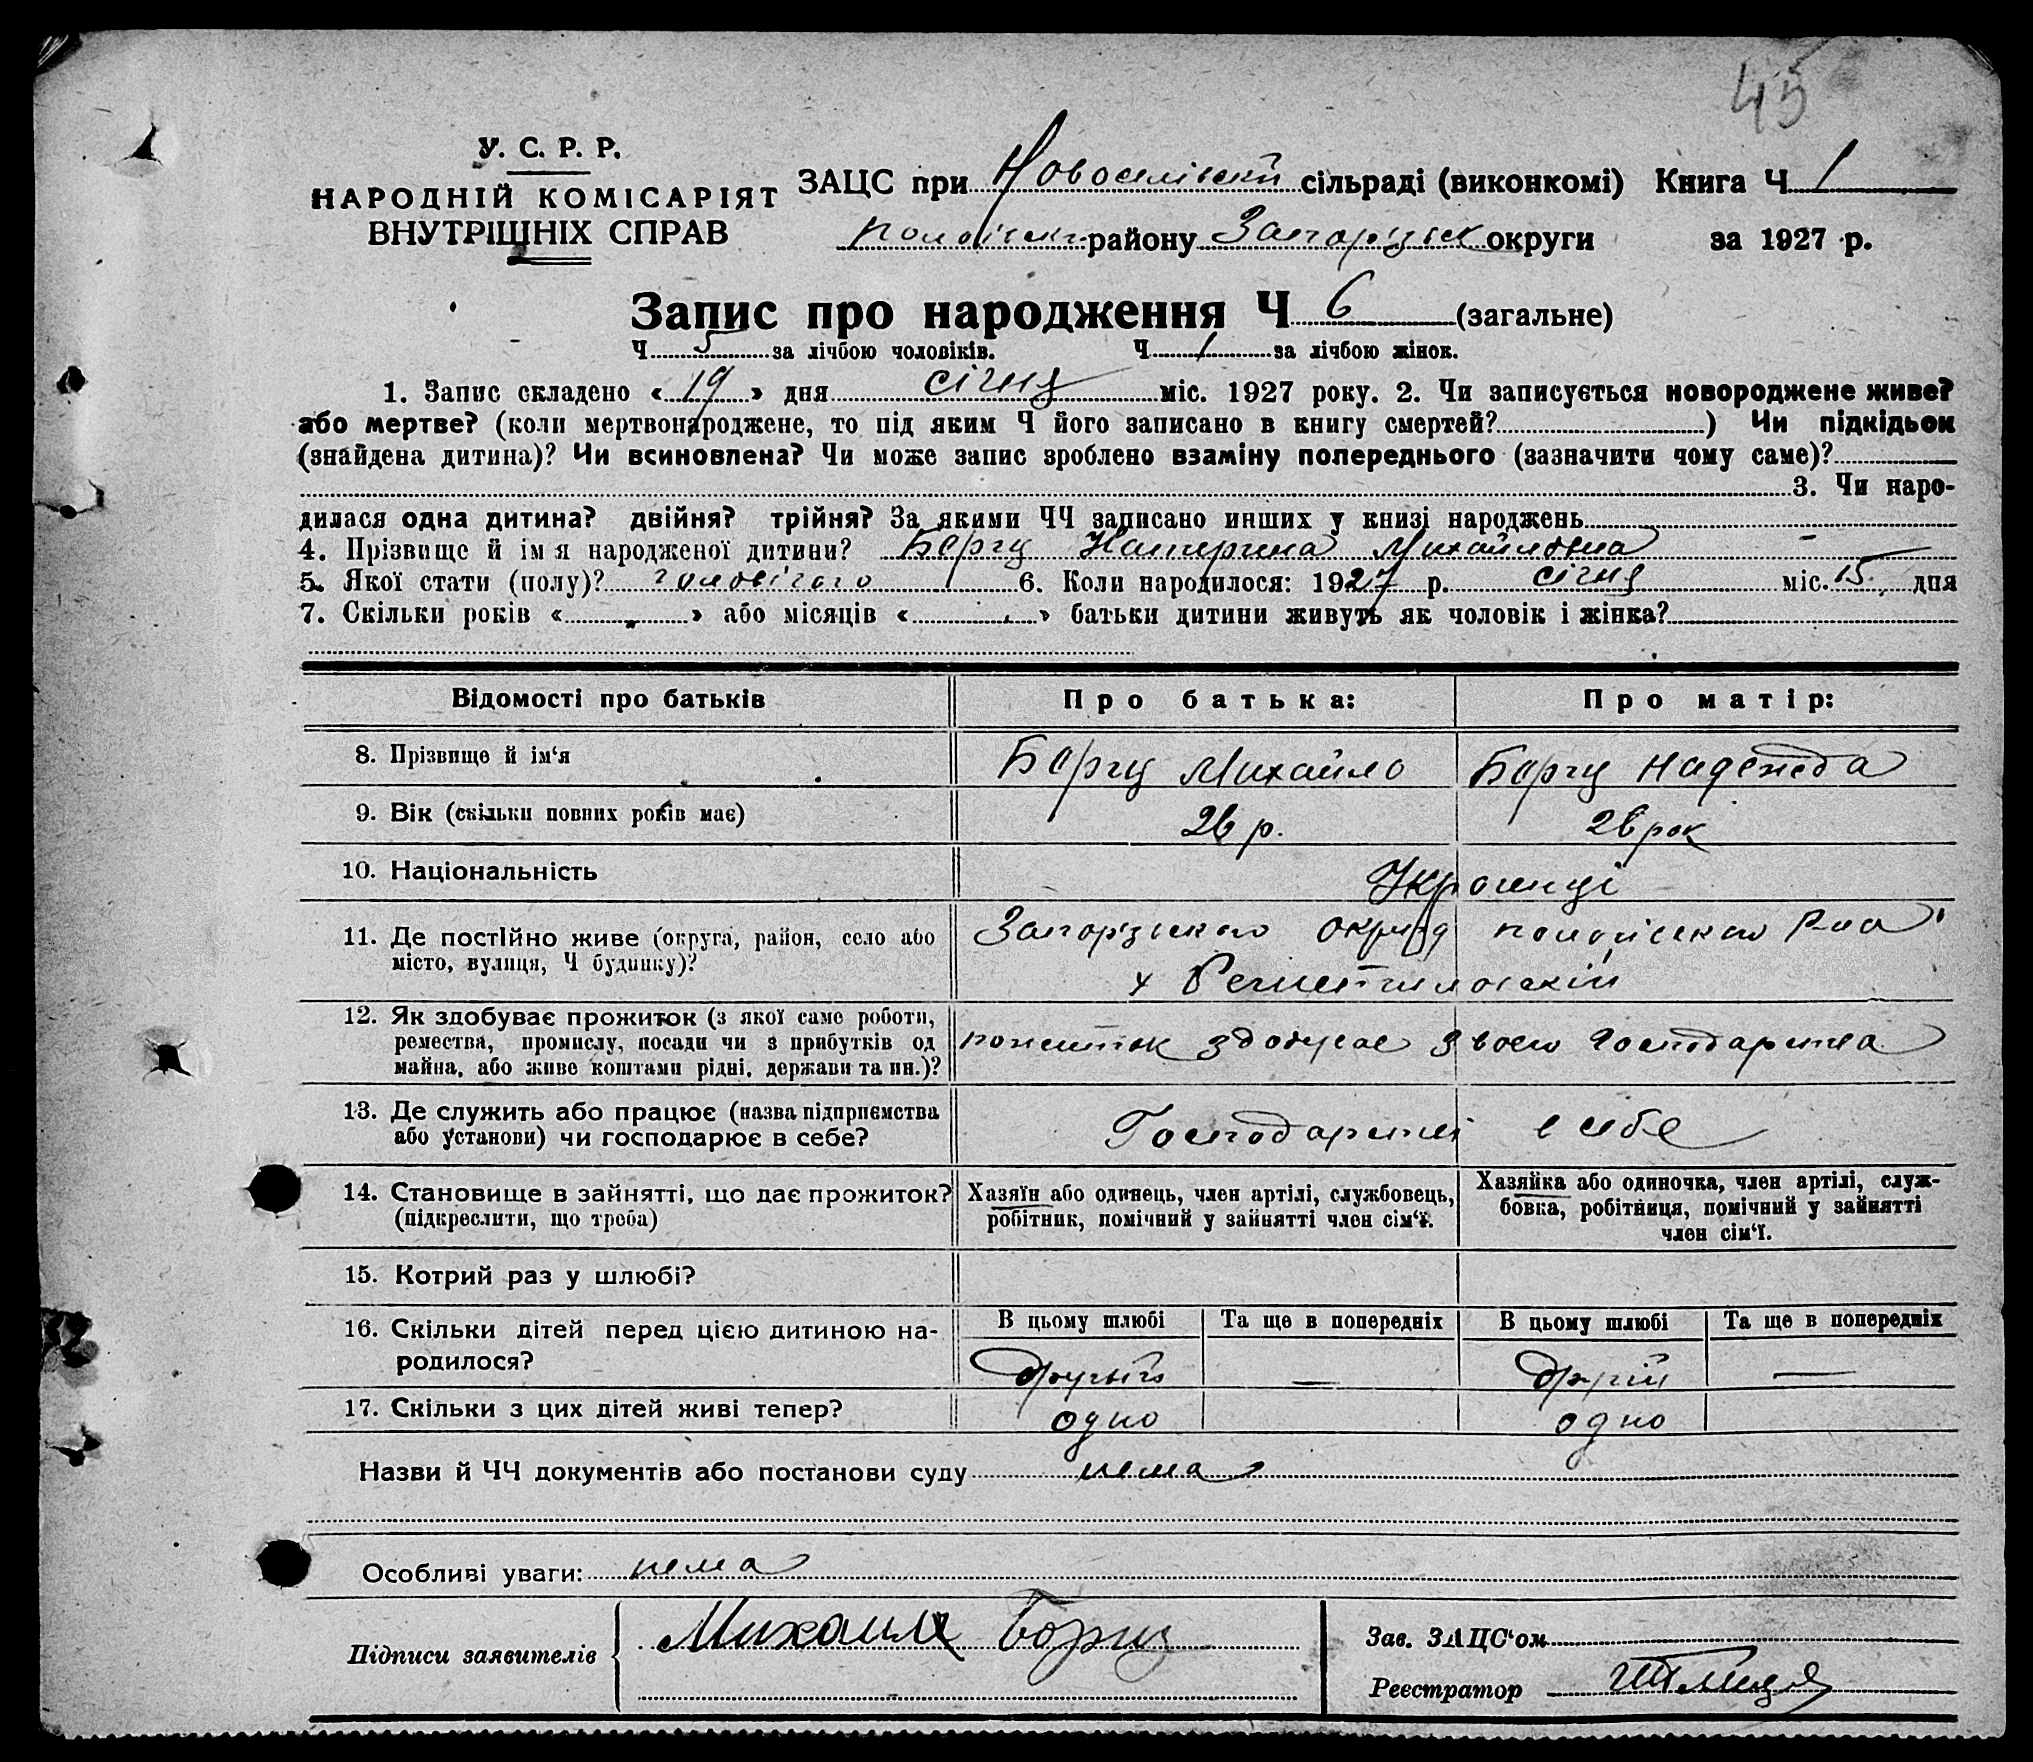 45
У. С. Р. Р.
НАРОДНІЙ КОМІСАРІЯТ
ВНУТРІШНІХ СПРАВ
ЗАЦС при Новоселівскій сільраді (виконкомі) Книга Ч 1
району Запорізьк округи за 1927 р.
Запис про народження Ч 6 (загальне)
Ч 5 за лічбою чоловіків. Ч 1 за лічбою жінок.
1. Запис складено « 19 » дня січня міс. 1927 року. 2. Чи записується новороджене живе?
або мертве? (коли мертвонароджене, то під яким Ч його записано в книгу смертей? ) Чи підкідьок
(знайдена дитина)? Чи всиновлена? Чи може запис зроблено взаміну попереднього (зазначити чому саме)?
3. Чи наро-
дилася одна дитина? двійня? трійня? За якими ЧЧ записано инших у книзі народжень
4. Прізвище й ім я народженої дитини? Борец Катерина Михайловна
5. Якої стати (полу)? чоловічого 6. Коли народилося: 1927 р. січня міс. 15 дня
7. Скільки років « » або місяців « » батьки дитини живуть як чоловік і жінка?
Відомості про батьків Про батька: Про матір:
8. Прізвище й ім‘я Борец Михайло Борец Надежда
9. Вік (скільки повних років має) 26 р. 26 рок
10. Національність Украинці
11. Де постійно живе (округа, район, село або Запорізького округа
місто, вулиця, Ч будинку)? х
12. Як здобуває прожиток (з якої саме роботи,
ремества, промислу, посади чи з прибутків од
майна, або живе коштами рідні, держави та ин.)? здобувае Господарства
13. Де служить або працює (назва підприємства
або установи) чи господарює в себе? в себе
14. Становище в зайнятті, що дає прожиток?
(підкреслити, що треба)
Хазяїн або одинець, член артілі, службовець,
робітник, помічний у зайнятті член сім‘ї.
Хазяйка або одиночка, член артілі, служ-
бовка, робітниця, помічний у зайнятті
член сім‘ї.
15. Котрий раз у шлюбі?
16. Скільки дітей перед цією дитиною на-
родилося?
В цьому шлюбі Та ще в попередніх В цьому шлюбі Та ще в попередніх
— —
17. Скільки з цих дітей живі тепер? одно одно
Назви й ЧЧ документів або постанови суду нема
Особливі уваги: нема
Підписи заявителів Михаил Борец
Зав. ЗАЦС‘ом
Реєстратор